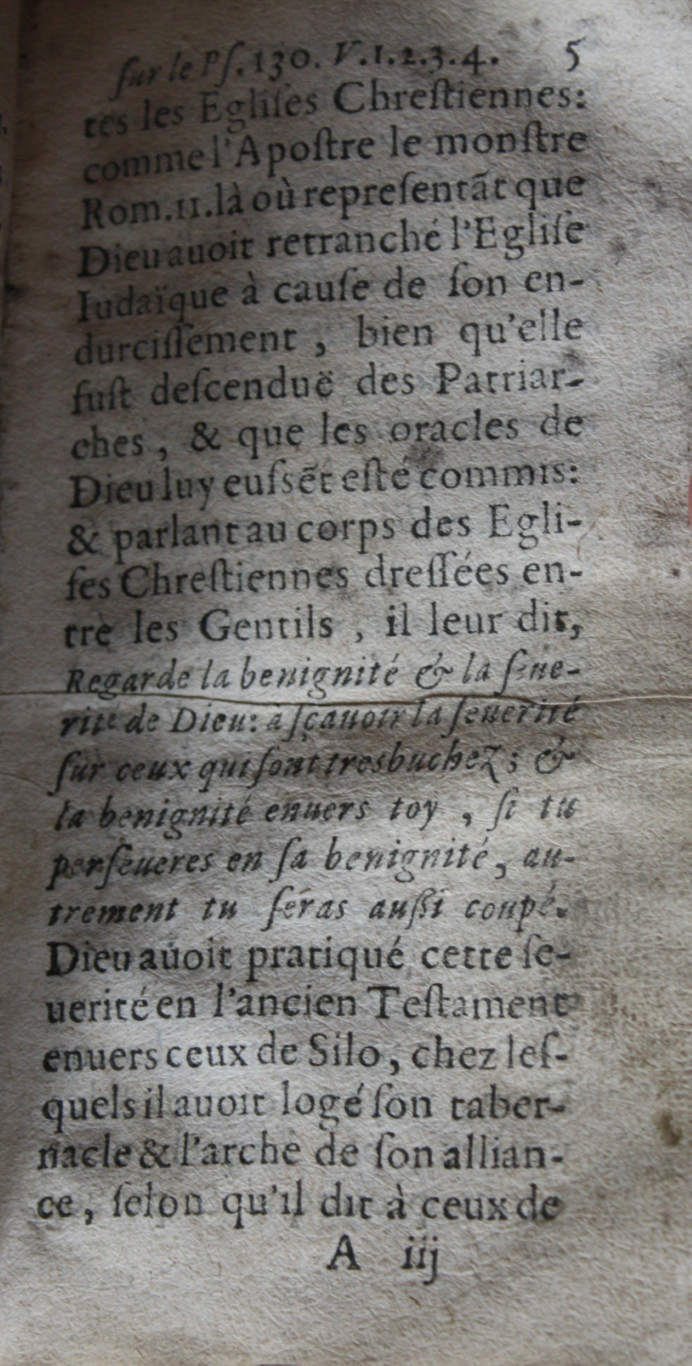 ſur le Pſ. 130. V. 1. 2. 3. 4. 5
tes les Egliſes Chreſtiennes:
comme l'Apoſtre le monſtre
Rom. 11. là où repreſentãt que
Dieu auoit retranché l'Egliſe
Iudaïque à cauſe de ſon en-
durciſſement, bien qu'elle
fuſt deſcenduë des Patriar-
ches, & que les oracles de
Dieu luy euſsẽt eſté commis:
& parlant au corps des Egli-
ſes Chreſtiennes dreſſées en-
tre les Gentils, il leur dit,
Regarde la benignité & la ſeue-
rité de Dieu: aſçauoir la ſeuerité
ſur ceux qui ſont tresbuchez; &
la benignité enuers toy, ſi tu
perſeueres en ſa benignité, au-
trement tu ſéras auſſi coupé.
Dieu auoit pratiqué cette ſe-
uerité en l'ancien Teſtament
enuers ceux de Silo, chez leſ-
quels il auoit logé ſon taber-
nacle & l'arche de ſon allian-
ce, ſelon qu'il dit à ceux de
A iij